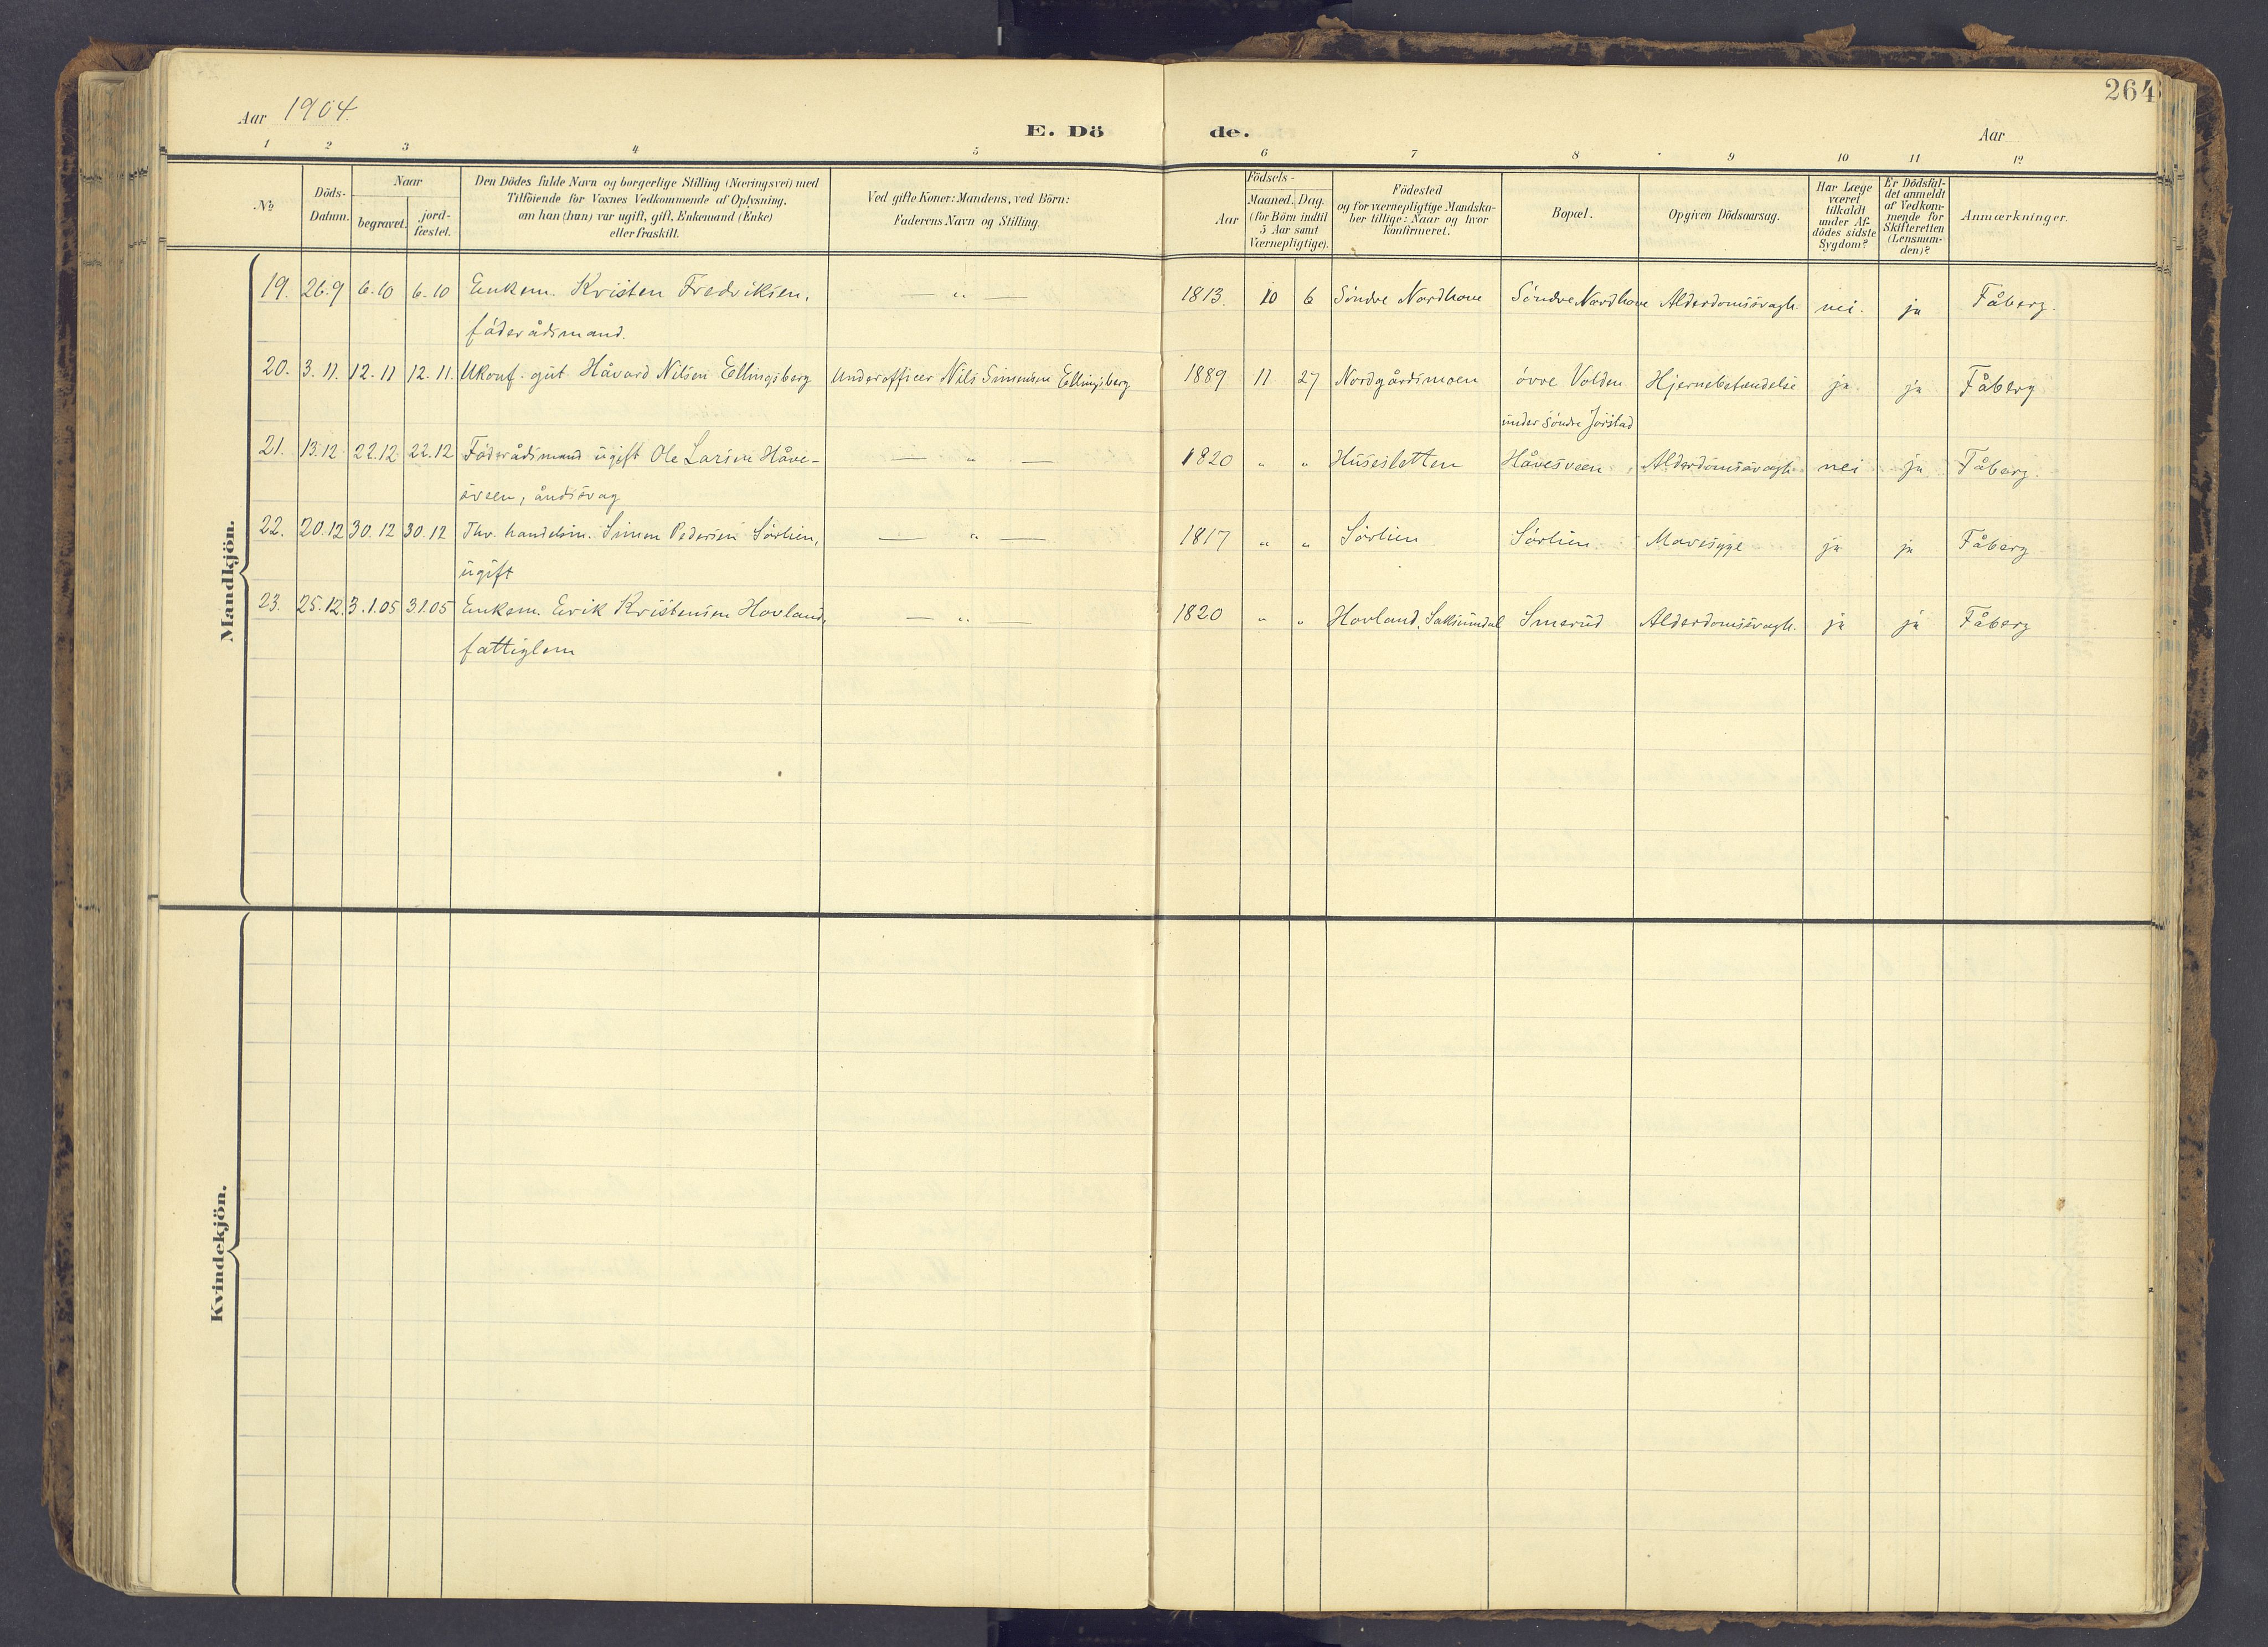 264
Aar 1904.
E. Dö de.
Aar
1 2 3 4 5 6 7 8 9 10 11 12
№
Döds-
Datum.
Naar
begravet.
jord-
fæstet.
Den Dödes fulde Navn og borgerlige Stilling (Næringsvei) med
Tilföiende for Voxnes Vedkommende af Oplysning,
om han (hun) var ugift, gift, Enkemand (Enke)
eller fraskilt.
Ved gifte Koner: Mandens, ved Börn:
Faderens Navn og Stilling.
Födsels-
Aar
Maaned. Dag.
(for Börn indtil
5 Aar samt
Værnepligtige).
Födested
og for værnepligtige Mandska-
ber tillige: Naar og hvor
konfirmeret.
Bopæl.
Opgiven Dödsaarsag.
Har Læge
været
tilkaldt
under Af-
dödes sidste
Sygdom?
Er Dödsfal-
det anmeldt
af Vedkom-
mende for
Skifteretten
(Lensman-
den)?
Anmærkninger.
Mandkjön.
19. 26.9 6.10 6.10 Enkem. Kristen Fredriksen, — „ — 1813. 10 6 Söndre Nordhove Söndre Nordhove Alderdomssvagh. nei. ja Fåberg.
föderådsmand.
20. 3.11. 12.11 12.11. Ukonf. gut Håvard Nilsen Ellingsberg Underofficer Nils Simensen Ellingsberg 1889 11 27 Nordgårdsmoen övre Volden Hjernebetændelse ja. ja Fåberg
under Söndre Jörstad
21. 13.12 22.12 22.12 Föderådsmand ugift Ole Larsen Håve- — „ — 1820 „ „ Husesletten Håvesveen Alderdomssvagh. nei ja Fåberg.
sveen, åndssvag
22. 20.12 30.12 30.12 Fhv. handelsm. Simen Pedersen Sörlien, — „ — 1817 „ „ Sörlien Sörlien. Mavesyge ja ja Fåberg
ugift
23. 25.12. 3.1.05 3.1.05 Enkem. Erik Kristensen Hovland, — „ — 1820 „ „ Hovland, Saksumdal Smerud Alderdomssvagh. ja ja Fåberg
fattiglem
Kvindekjön.